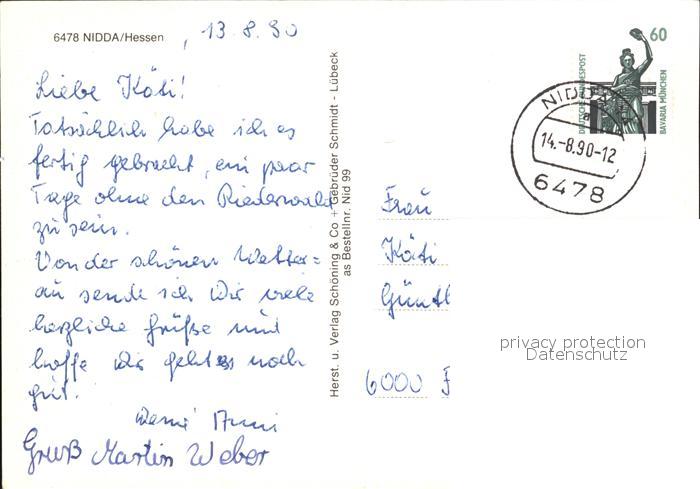 6478 NIDDA/Hessen
, 13.8.90
Liebe Käti!
Tatsächlich habe ich es
fertig gebracht, ein paar
Tage ohne den Riederwald
zu sein.
Von der schönen Wetter=
au sende ich Dir viele
herzliche Grüße und
hoffe dir geht es noch
gut.
Deine Anni
Gruß Martin Weber
Herst. u. Verlag Schöning & Co + Gebrüder Schmidt - Lübeck
as Bestellnr. Nid 99
Frau
Käti
Günth
6000 F
60
DEUTSCHE BUNDESPOST
BAVARIA MÜNCHEN
NIDD
14.-8.90-12
6478
privacy protection
Datenschutz